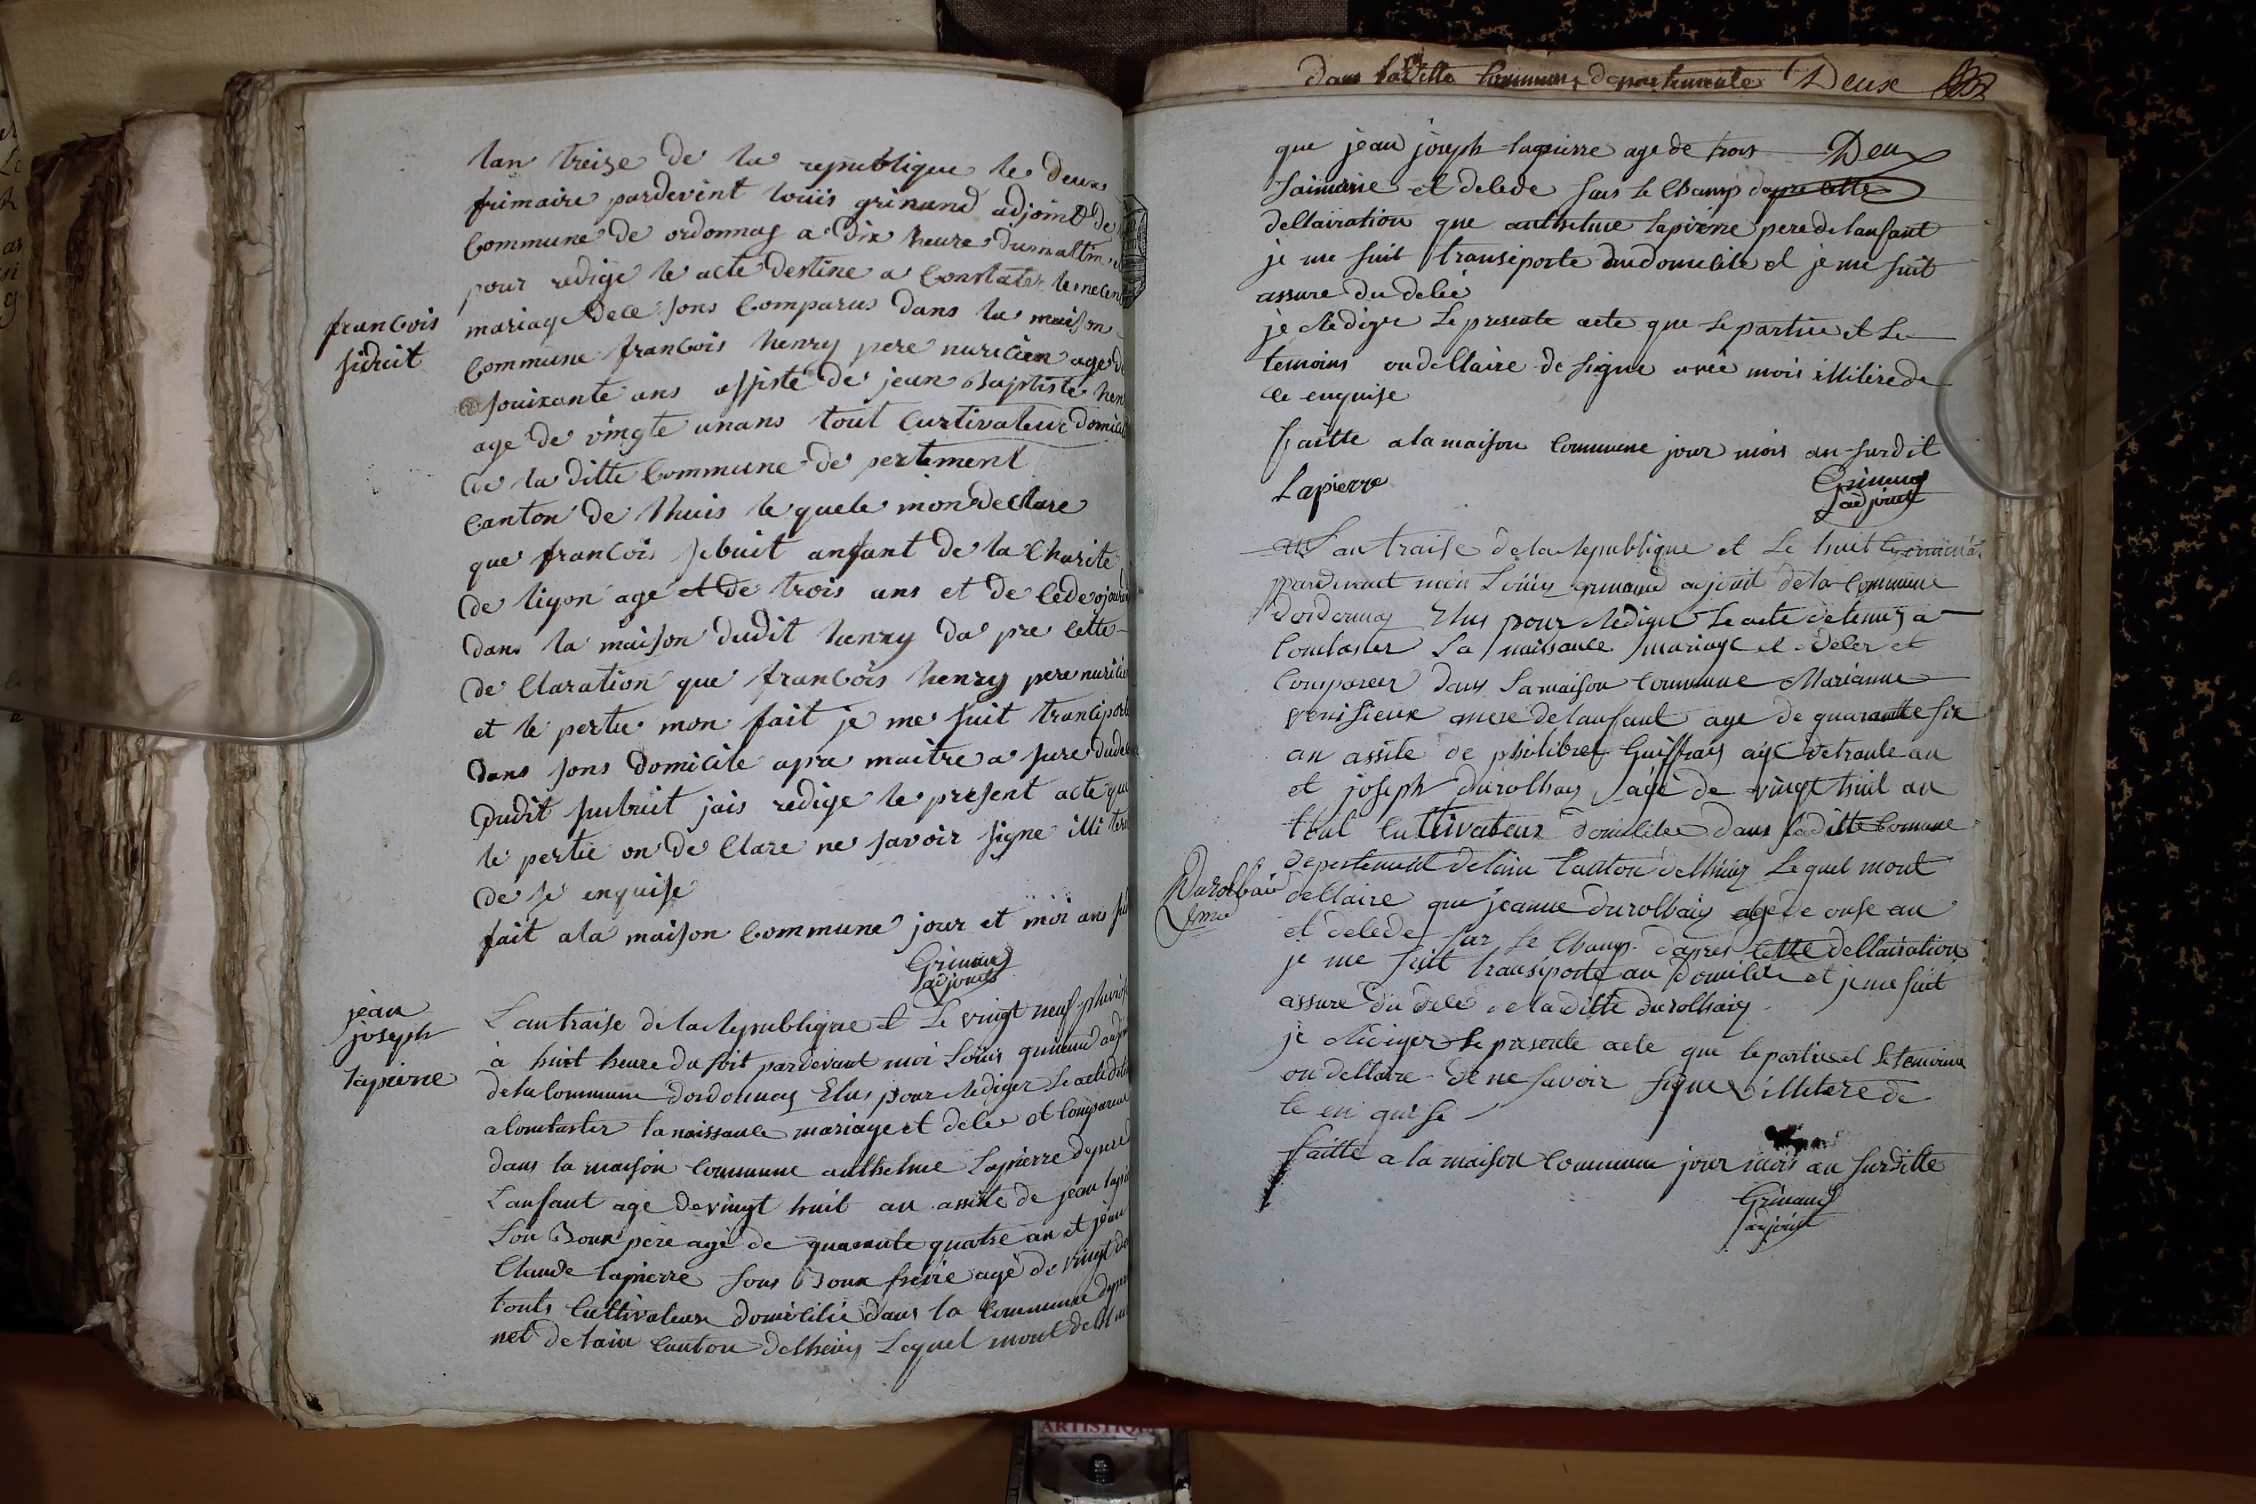 lan treize de la republique le deux
frimaire pardevent louis grinand adjoint de
Commune de ordonnas a dix heure dumattin
pour redige le acte destine a Constater
mariage dece sons Comparus dans la maison
Commune francois henry pere nuricien age de
souixante ans assiste de jean Baptiste hen
age de vingte unans tout Curtivateur domici
de la ditte Commune de pertement
Canton de lhuis le quele mon declare
que francois sebuit anfant de la Charite
de liyon age et de trois ans et de cede
dans la maison dudit henry da pre cette
de Claration que francois henry pere nurici
et le pertie mon fait je me suit transiport
dans sons domicile apre maitre a sure dude
dudit subuit jais redige le present acte que
le pertie on de Clare ne savoir signe illi tere
de se enquise
fait ala maison Commune jour et moi ans su
Grinand
adjoint
francois
sibuit
jean
joseph
lapierre
Lan traise de la Republique et Le vingt neuf pluvio
à huit heure du soit pardevant moi Loüis grinand adj
dela Commune dordonnas Elus pour Rediger Le acte
a Contaster la naissance mariage et dece et Comparu
dans la maison Commune anthelme Lapierre
Lanfant age de vingt huit an assite de jean lapi
Son Boux pere age de quarante quatre an et jean
Claude lapierre sons Boux frere age de vingt
touts Cultivateur domicilie dans la Commune
net de lain Canton delhuis Lequel mont
dans ladille Commune departemente Deux
que jean joseph lapierre age de trois Deux
saimaine et delede sur Le Champ dapre cette
dellairation que anthelme lapierre pere de lanfant
je me suit transiporte audomicile et je me suit
assure du delée
je Rediger Le presente acte que Le partie et Le
temoins on dellaire de signe avec mois illitere de
ce enquise
Faitte a la maison Commune jour mois an surdit
Lapierre
Grinand
adjoint
Lan traise dela Republique et Le huit
pardevant moi Loüis grinand ajoint dela Commune
dordonnas Elus pour Rediger Le acte a
Contaster La naissance mariage et deler et
Comparer dans La maison Commune Marianne
venisieux mere de lanfant age de quarantte six
an assite de philibert Guiffray age de trante an
et joseph durolhay age de vingt huit an
tout Cultivateur domilie dans ladille Comune
depertement delain Canton delhuis Lequel mont
dellaire que jeanne durolhay age de onse an
et delede sur Le Champ dapres cette dellairation
je me suit transiporte au domilile et je me suit
assure du delé de laditte durolhay
je Rédiger Le presente acte que le partie et Le temoins
on dellaire de ne savoir signe illitere de
ce en quise
faitte a la maison Commune jour mois an surditte
Grinand
adjoint
ARTISTIQU